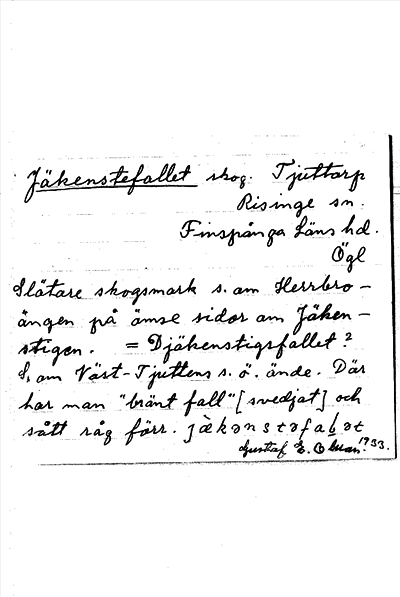 Jäkenstefallet skog. Tjuttorp
Risinge sn.
Finspånga Läns hd.
Ögl
Slätare skogsmark s. om Herrbro-
ängen på ömse sidor om Jäken-
stigen. = Djäkenstigsfallet?
S. om Väst-Tjuttens s. ö. ände. Där
har man "bränt fall" [svedjat] och
sått råg förr. jækənstəfaḷət
Gustaf E. 1933.